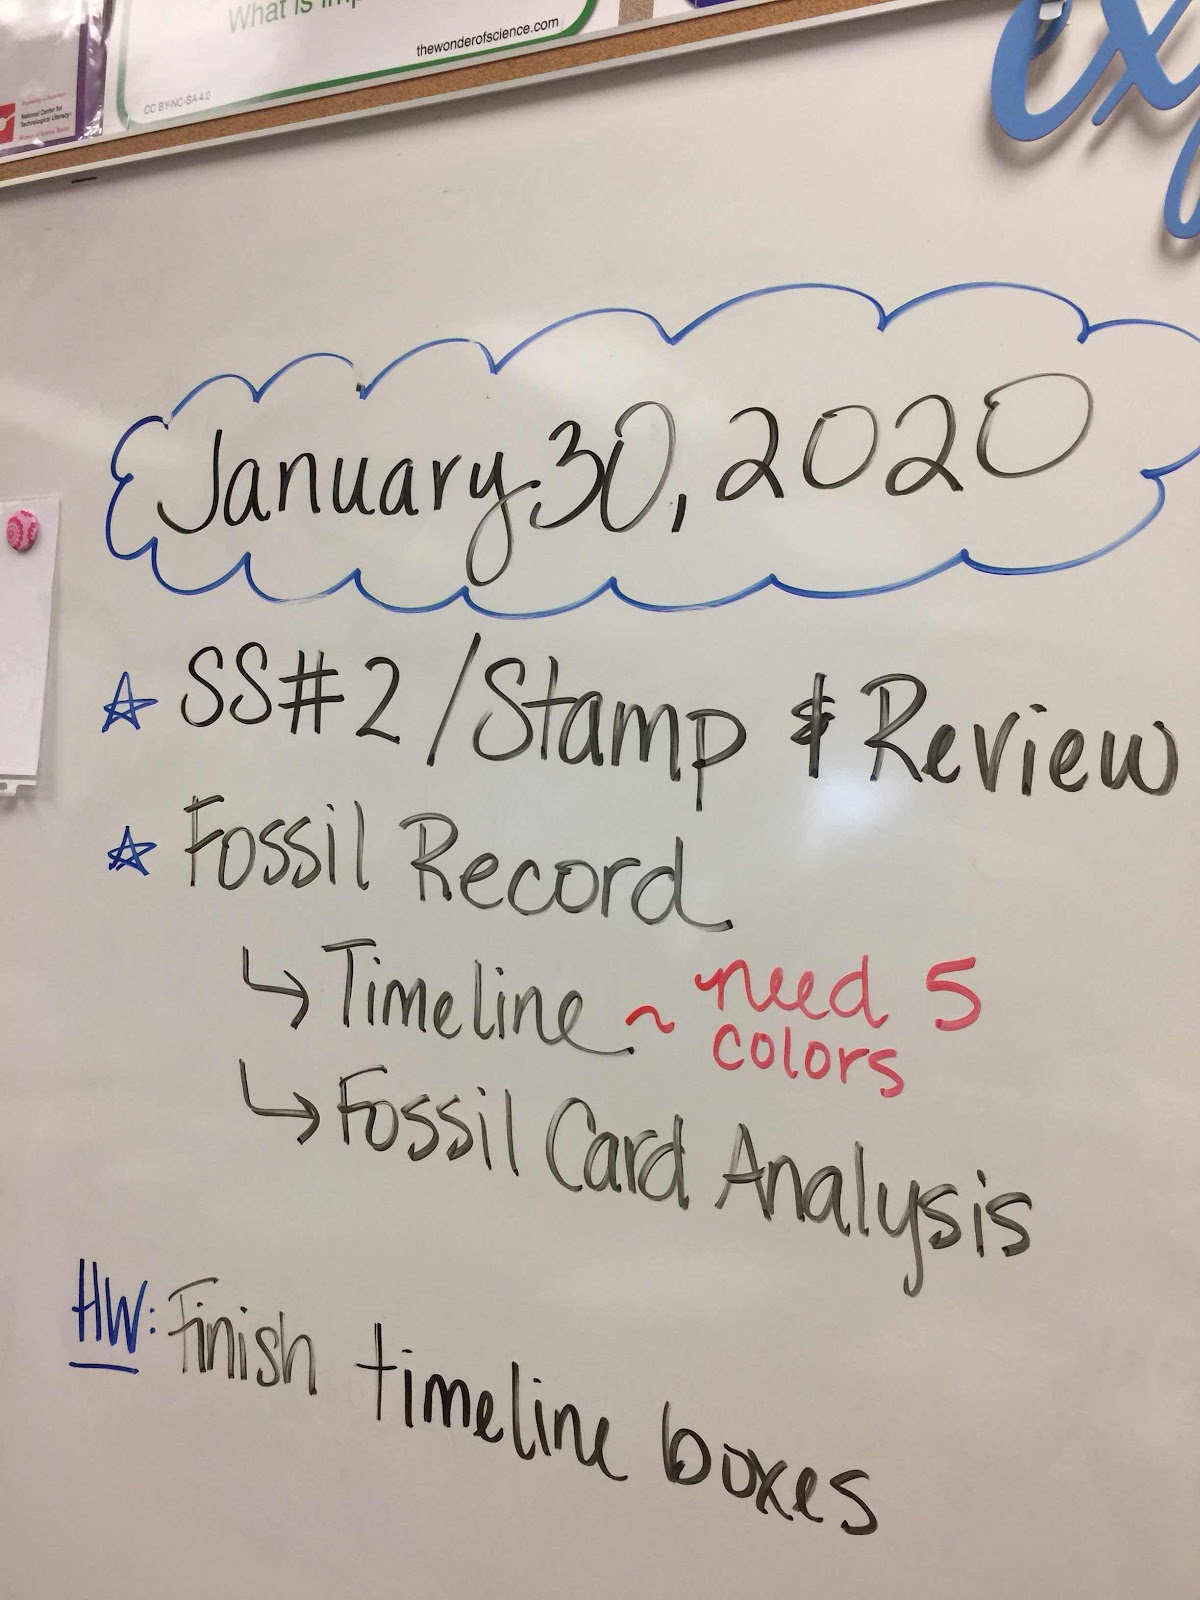 What is
thewonderofscience.com
CC BY-NC-SA 4.0
National Center for
Technological Literacy
January 30, 2020
SS#2/Stamp & Review
Fossil Record
↳ Timeline ~ need 5
colors
↳ Fossil Card Analysis
HW: Finish timeline boxes